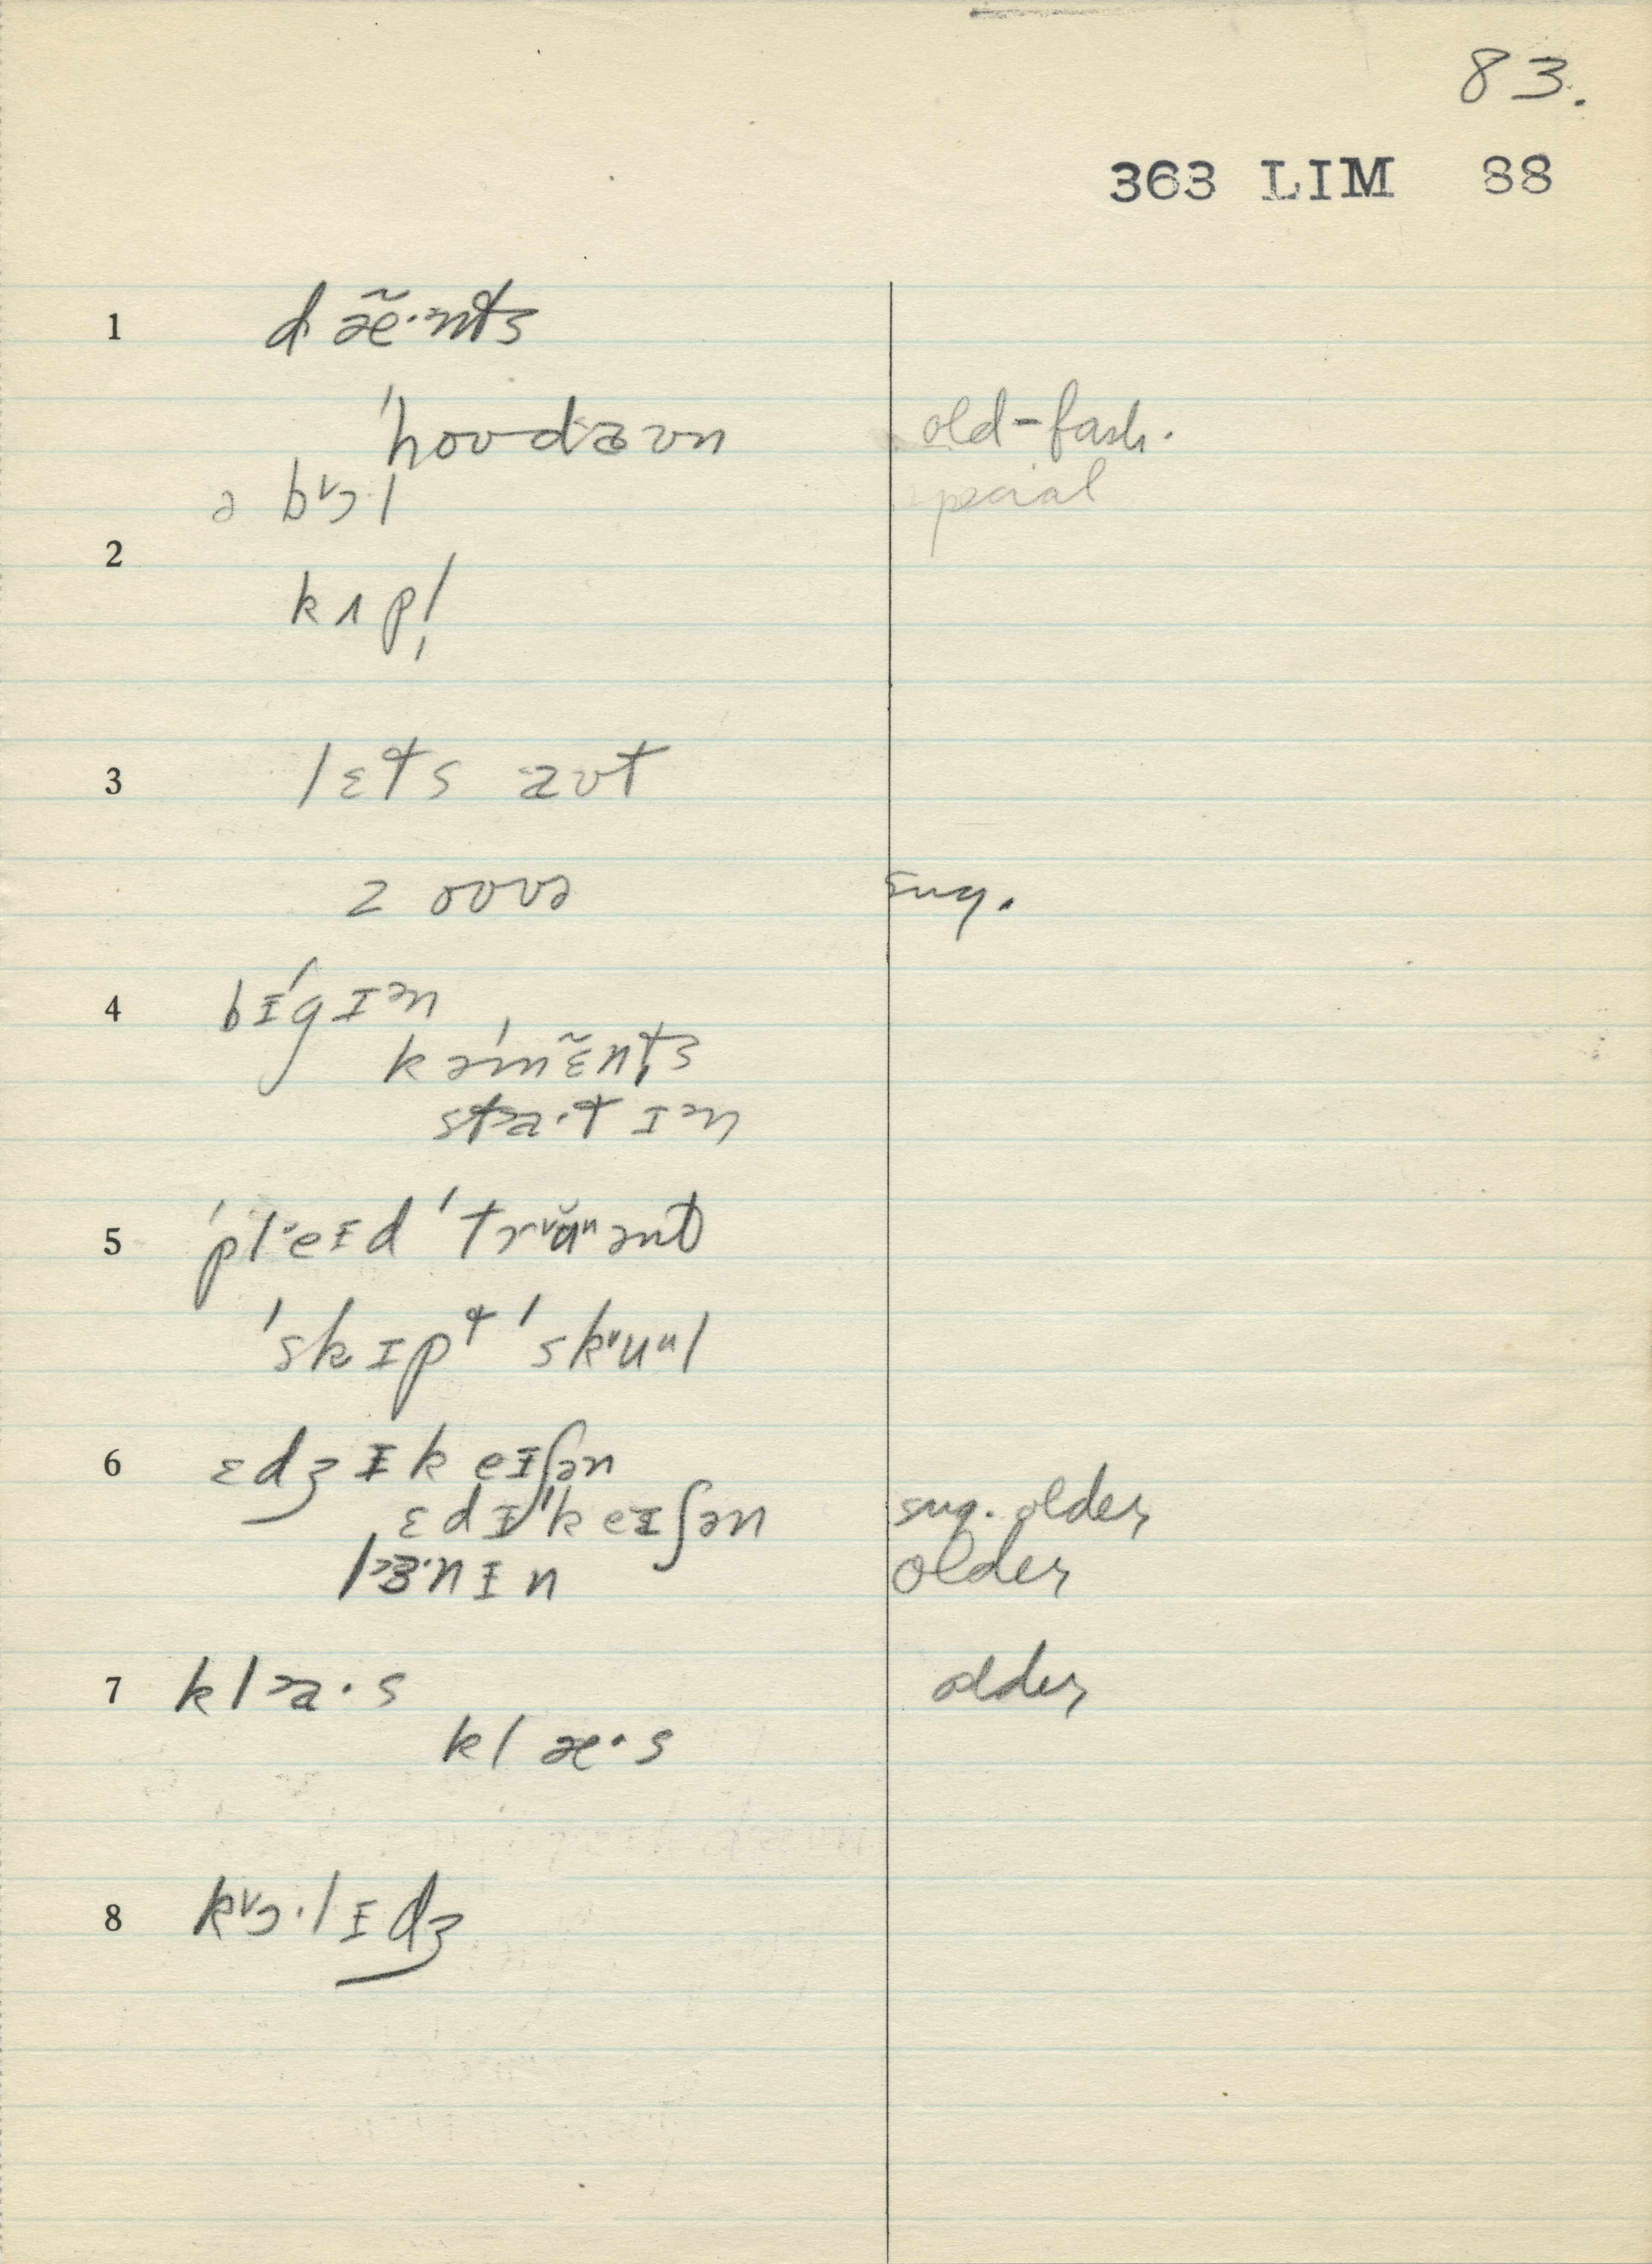 83.
363 LIM 88
1 dæ̃·nts
'hoʊdaʊn old-fash.
ə bᵛɔ·l special
2 kʌpl̩
3 lɛts aʊt
ɪz oʊvə sug.
4 bɪ'gɪᵊn
kə'mɛ̃nts
sta·t ɪᵊn
5 'pleɪd 'trᵛŭᵘənt
'skɪpt 'skᵛuᵘl
6 ɛdʒɪkeɪʃən
ɛdɪ'keɪʃən sug. older
lɜ·nɪn older
7 kla·s older
klæ·s
8 kᵛɔ·lɪdʒ